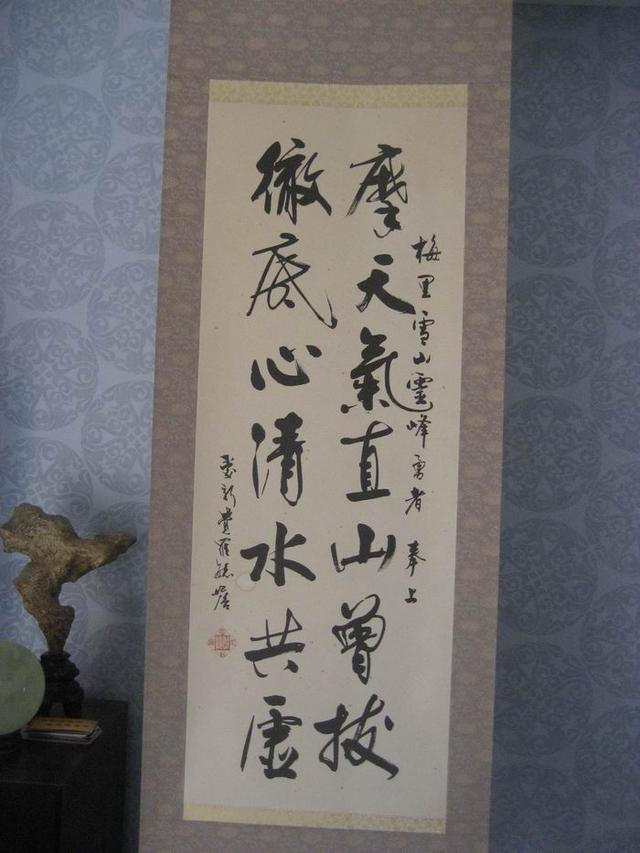 梅里雪山霊峰勇者 奉上
摩天氣直山曾拔
徹底心清水共虛
愛新覺羅毓嶦